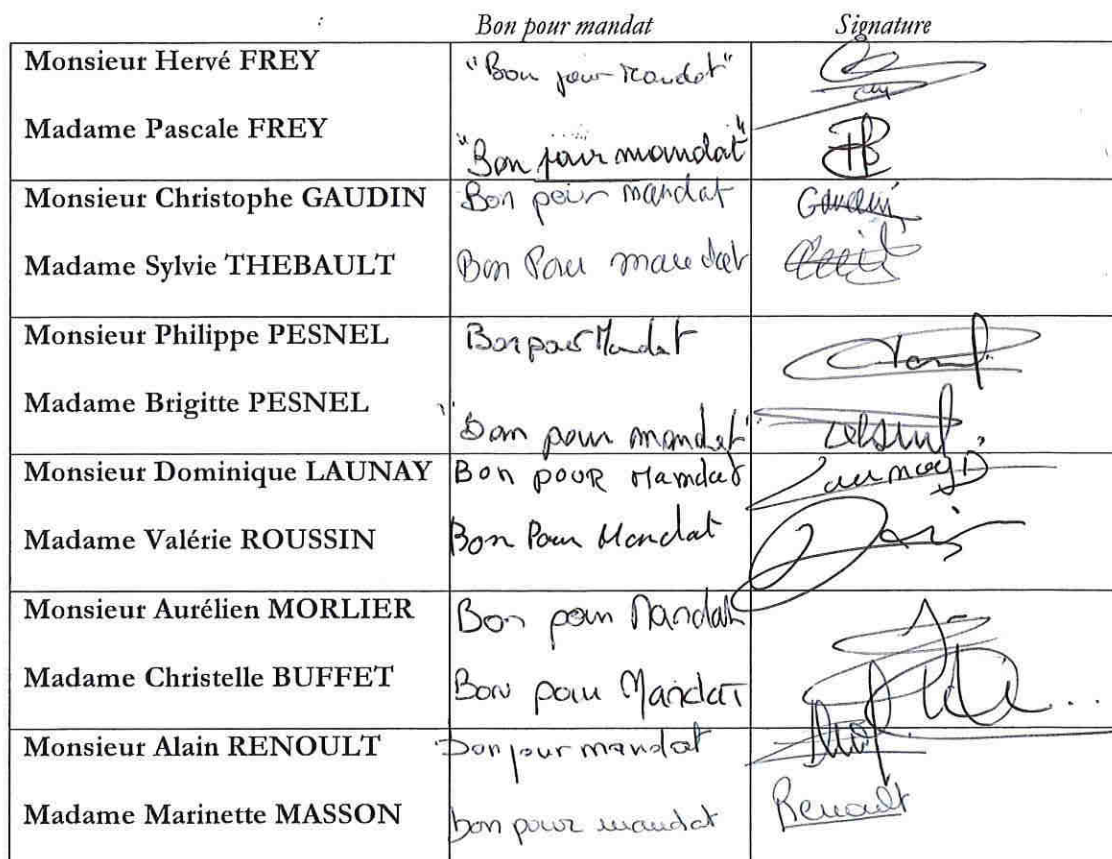 Bon pour mandat Signature
Monsieur Hervé FREY "Bon pour mandat"
Madame Pascale FREY "Bon pour mandat"
Monsieur Christophe GAUDIN Bon pour mandat Gaudin
Madame Sylvie THEBAULT Bon Pour mandat
Monsieur Philippe PESNEL Bon pour Mandat
Madame Brigitte PESNEL "Bon pour mandat"
Monsieur Dominique LAUNAY Bon pour Mandat Launay D
Madame Valérie ROUSSIN Bon Pour Mandat
Monsieur Aurélien MORLIER Bon pour Mandat
Madame Christelle BUFFET Bon pour Mandat
Monsieur Alain RENOULT Bon pour mandat
Madame Marinette MASSON Bon pour mandat Renoult